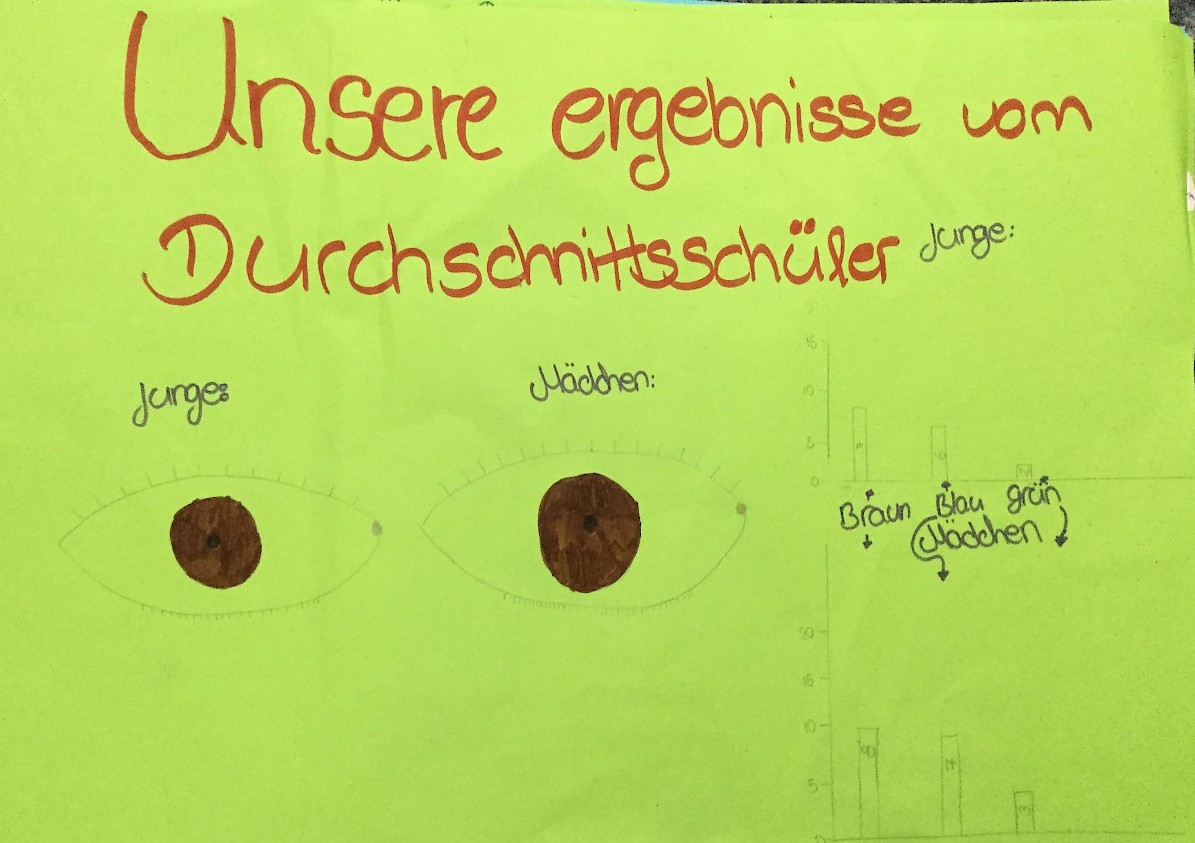 Unsere ergebnisse vom
Durchschnittsschüler
Junge:
Junge:
Mädchen:
15
5
0
Braun Blau grün
Mädchen
20
15
10
5
0
8
7
3